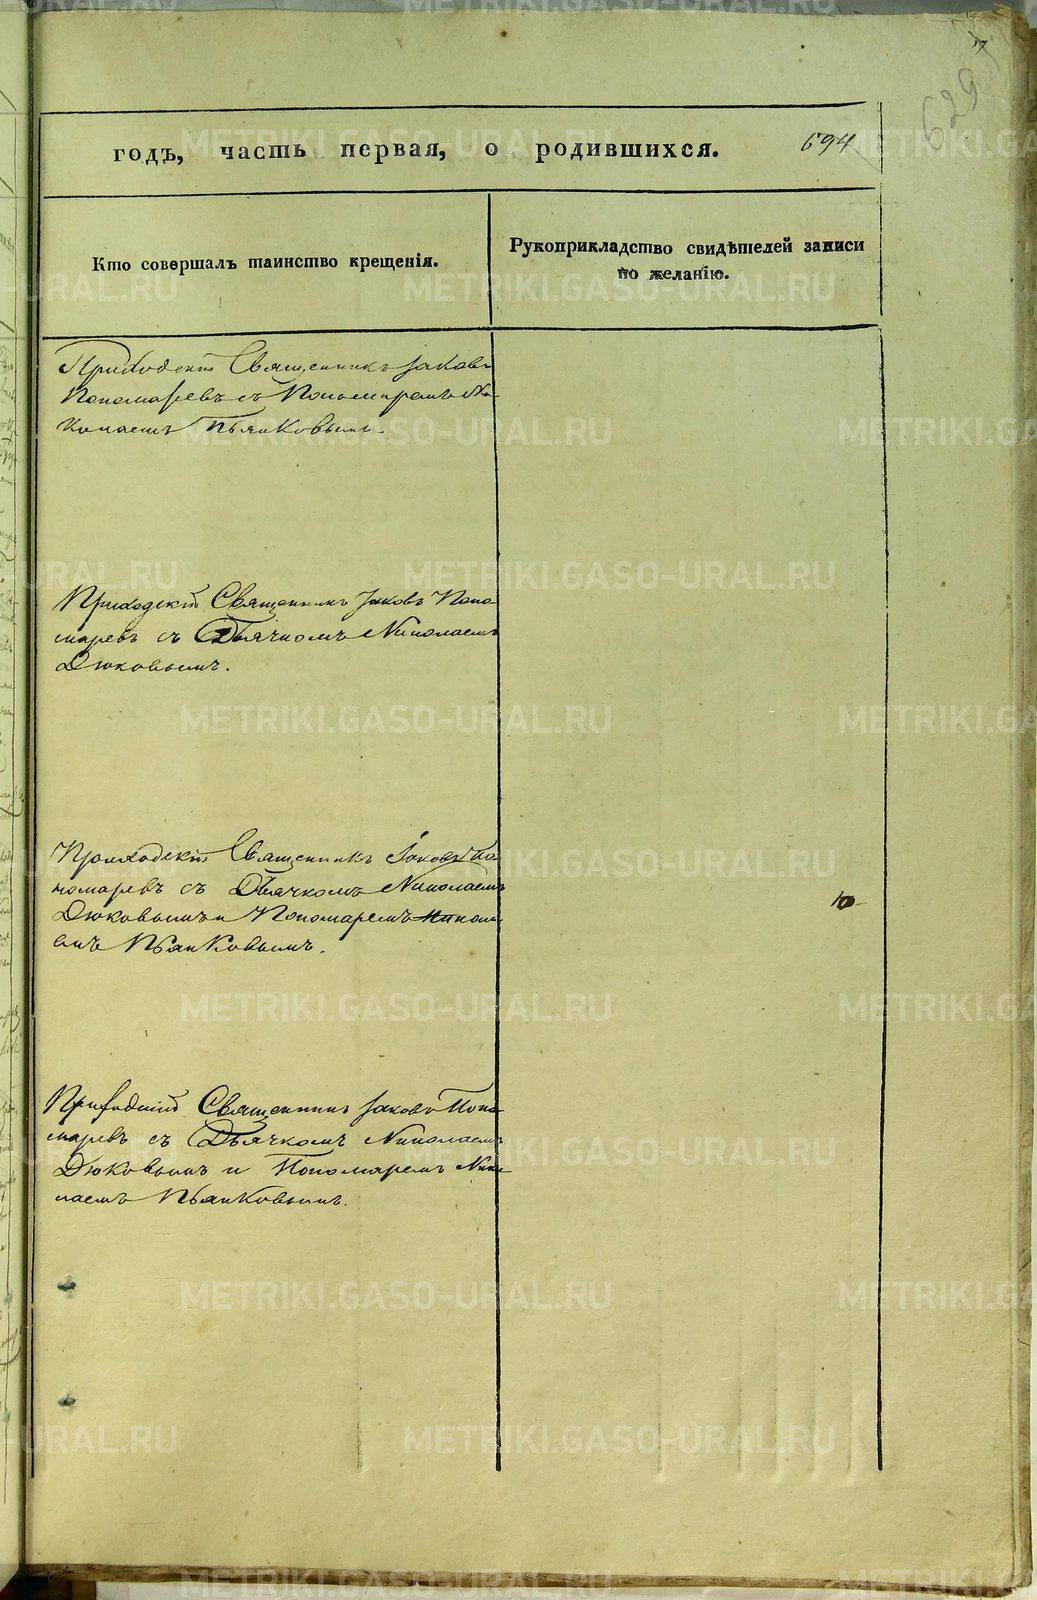 629
годъ, часть первая, о родившихся. 694
Кто совершалъ таинство крещенія.
Рукоприкладство свидѣтелей записи
по желанію.
Приходскій Священникъ Іаковъ
Пономаревъ съ Пономаремъ Ни-
колаемъ Пьянковымъ.
Приходскій Священникъ Іаковъ Поно-
маревъ съ Дьячкомъ Николаемъ
Дюковымъ.
Приходскій Священникъ Іаковъ По-
номаревъ съ Дьячкомъ Николаемъ
Дюковымъ и Пономаремъ Никола-
емъ Пьянковымъ.
10
Приходскій Священникъ Іаковъ Поно-
маревъ съ Дьячкомъ Николаемъ
Дюковымъ и Пономаремъ Нико-
лаемъ Пьянковымъ.
METRIKI.GASO-URAL.RU